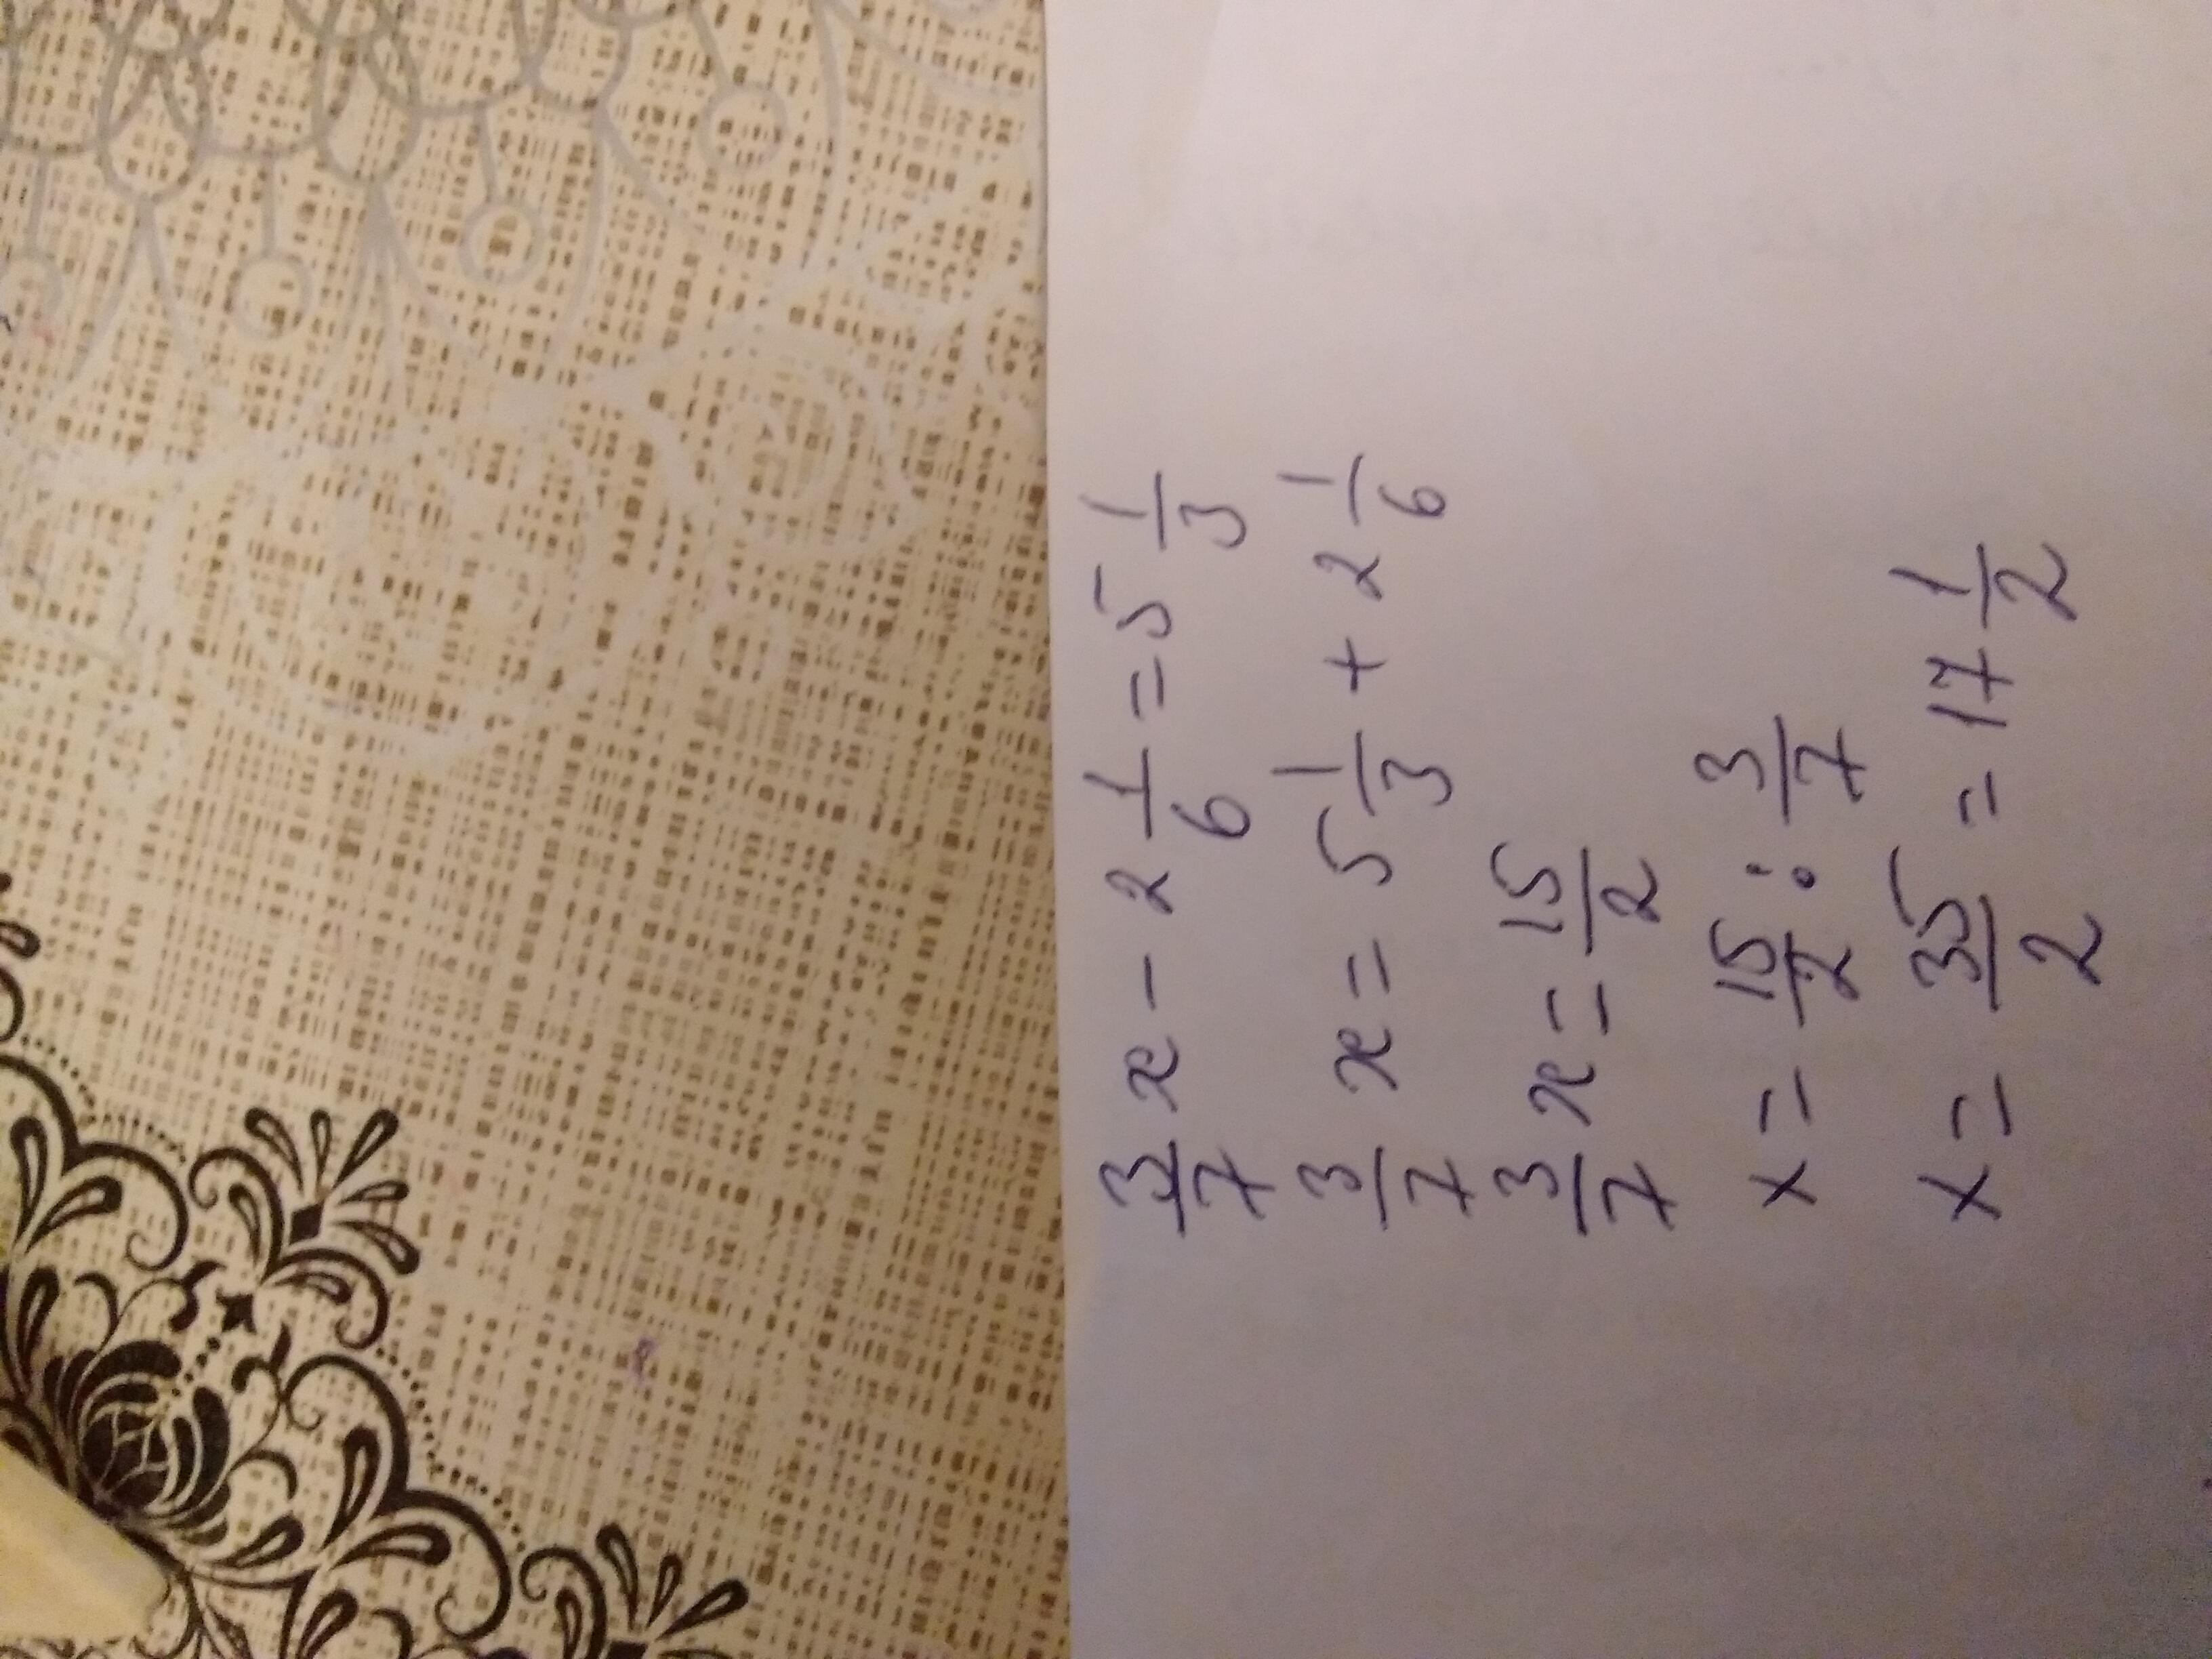 3/7 x - 2 1/6 = 5 1/3
3/7 x = 5 1/3 + 2 1/6
3/7 x = 15/2
x = 15/2 : 3/7
x = 35/2 = 17 1/2